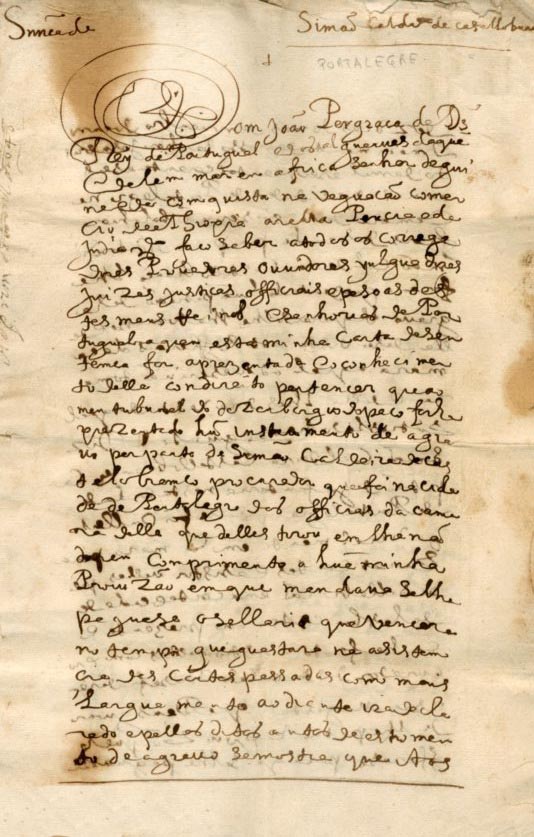 Snnca de
Simaõ Caldrª de casttellobranco
PORTALEGRE
Dom João Per graça de Ds
Rey de Portugual e dos algarves daque
e dalem mar em africa Senhor de gui
ne e da comquista navegação comer
cio de ethiopia arabia Percia e da
India &ª faço saber a todos os correge
dores Provedores ouvidores yulguadores
juizes justiças officiais e pesoas de
tes meus Reinos e Senhorios de Por
tugual a quem esta minha Carta de sen
temca for aprezentada e o conhecimen
to della con direito pertencer que ao
meu tribunal do dezembargo do paço foi
prezentado hũ instrumento de agra
vo per parte de Simaõ Caldeira de cas
telobranco procurador que foi na cida
de de Portalegre dos officiais da cama
ra della que delles tirou em lhe naõ
darem comprimento a huã minha
Provizaõ em que mandava se lhe
paguase o sellario que vencera
no tempo que guastara na asistem
cia das Cortes passadas como mais
Larguamento ao diante ira decla
rado e pellos ditos autos de estormen
to de agravo se mostra que Aos